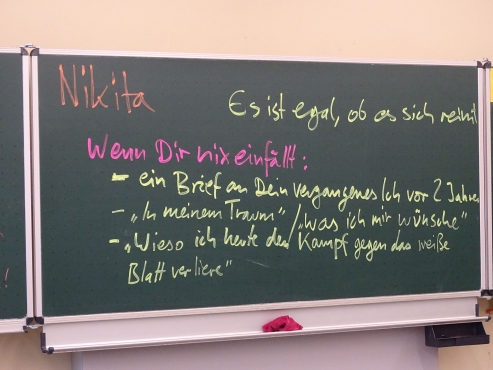 Nikita
Es ist egal, ob es sich reimt
Wenn Dir nix einfällt:
- ein Brief an Dein vergangenes Ich vor 2 Jahren
- „In meinem Traum" / „was ich mir wünsche"
- „Wieso ich heute den Kampf gegen das weiße
Blatt verliere"